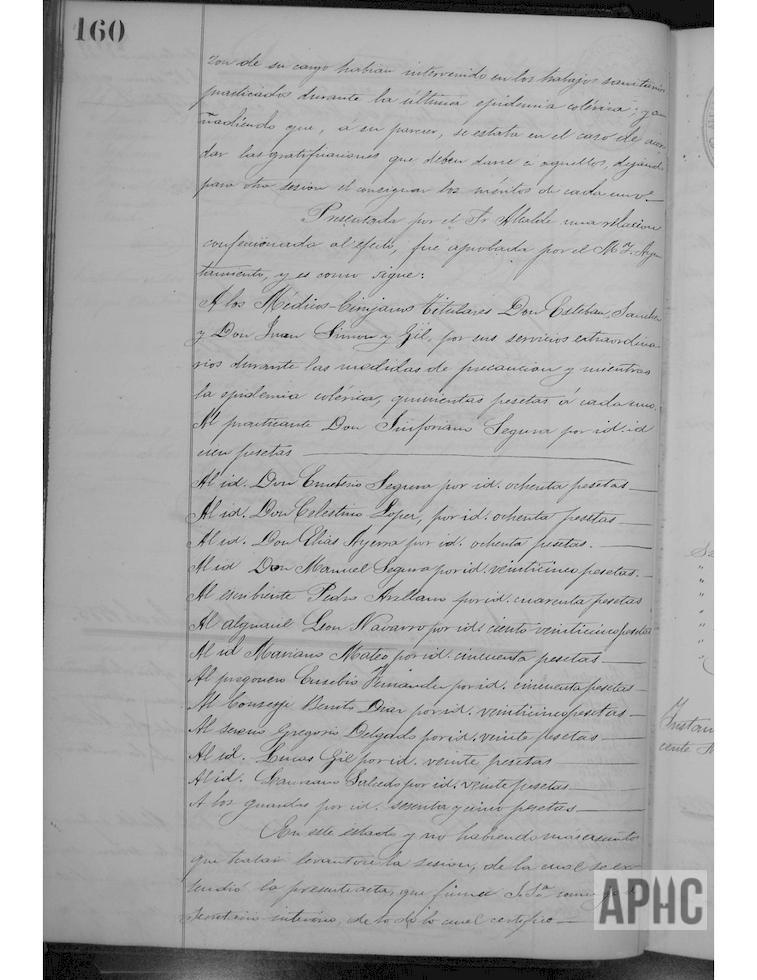 160
zon de su cargo habian intervenido en los trabajos sanitarios
practicados durante la última epidemia colérica; y a
ñadiendo que, á su parecer, se estaba en el caso de acor
dar las gratificaciones que deben darse a aquellos, dejando
para otra sesion el consignar los méritos de cada uno.
Presentada por el Sr Alcalde una relacion
confeccionada al efecto, fue aprobada por el M. I. Ayun
tamiento, y es como sigue:
A los Médicos-Cirujanos titulares Don Esteban Sanchez
y Don Juan Simon y Gil, por sus servicios extraordina
rios durante las medidas de precaucion y mientras
la epidemia colérica, quinientas pesetas á cada uno.
Al practicante Don Sinforiano Segura por id. id
cien pesetas
Al id. Don Emeterio Segura por id. ochenta pesetas
Al id. Don Celestino Lopez, por id. ochenta pesetas
Al id. Don Elias Ayerra por id. ochenta pesetas.
Al id Don Manuel Segura por id. veinticinco pesetas.
Al escribiente Pedro Arellano por id. cuarenta pesetas
Al alguacil Leon Navarro por id. ciento veinticinco pesetas
Al id Mariano Mateo por id. cincuenta pesetas
Al pregonero Eusebio Fernandez por id. cincuenta pesetas
Al Conserje Benito Diaz por id. veinticinco pesetas
Al sereno Gregorio Delgado por id. veinte pesetas
Al id. Lucas Gil por id. veinte pesetas
Al id. Laureano Salcedo por id. veinte pesetas
A los guardas por id. sesenta y cinco pesetas
En este estado y no habiendo mas asuntos
que tratar levantose la sesion, de la cual se ex
tendió la presente acta, que firma S. Sa. conmigo el
Secretario interino, de todo lo cual certifico
APHC